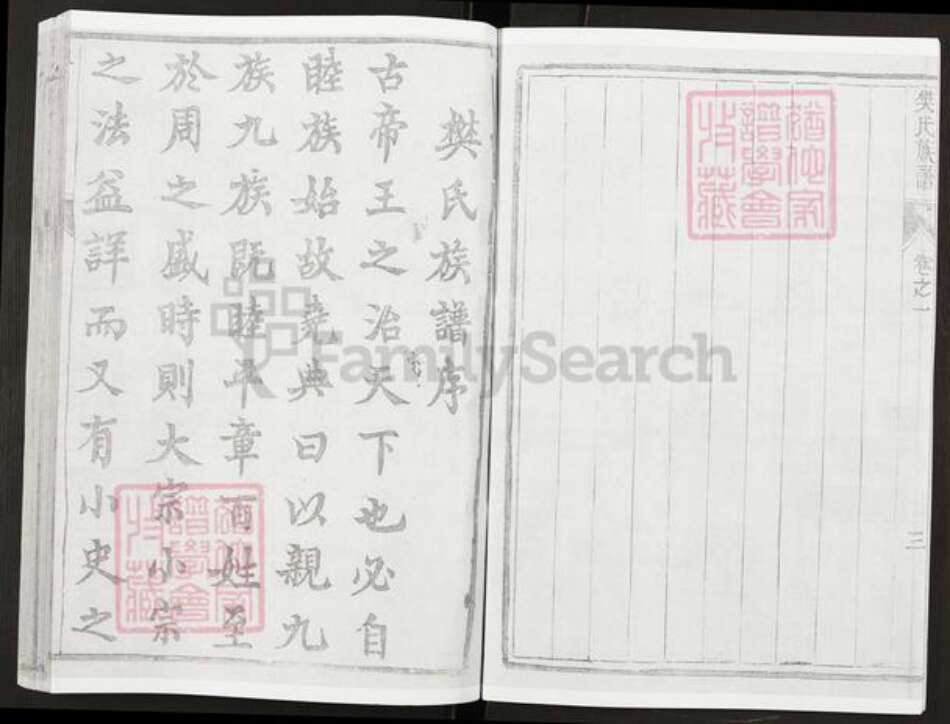 樊氏族譜
卷之一
三
樊氏族譜序
古帝王之治天下也必自
睦族始故堯典曰以親九
族九族既睦平章百姓至
於周之盛時則大宗小宗
之法益詳而又有小史之
譜學會
收藏
譜學會
收藏
FamilySearch